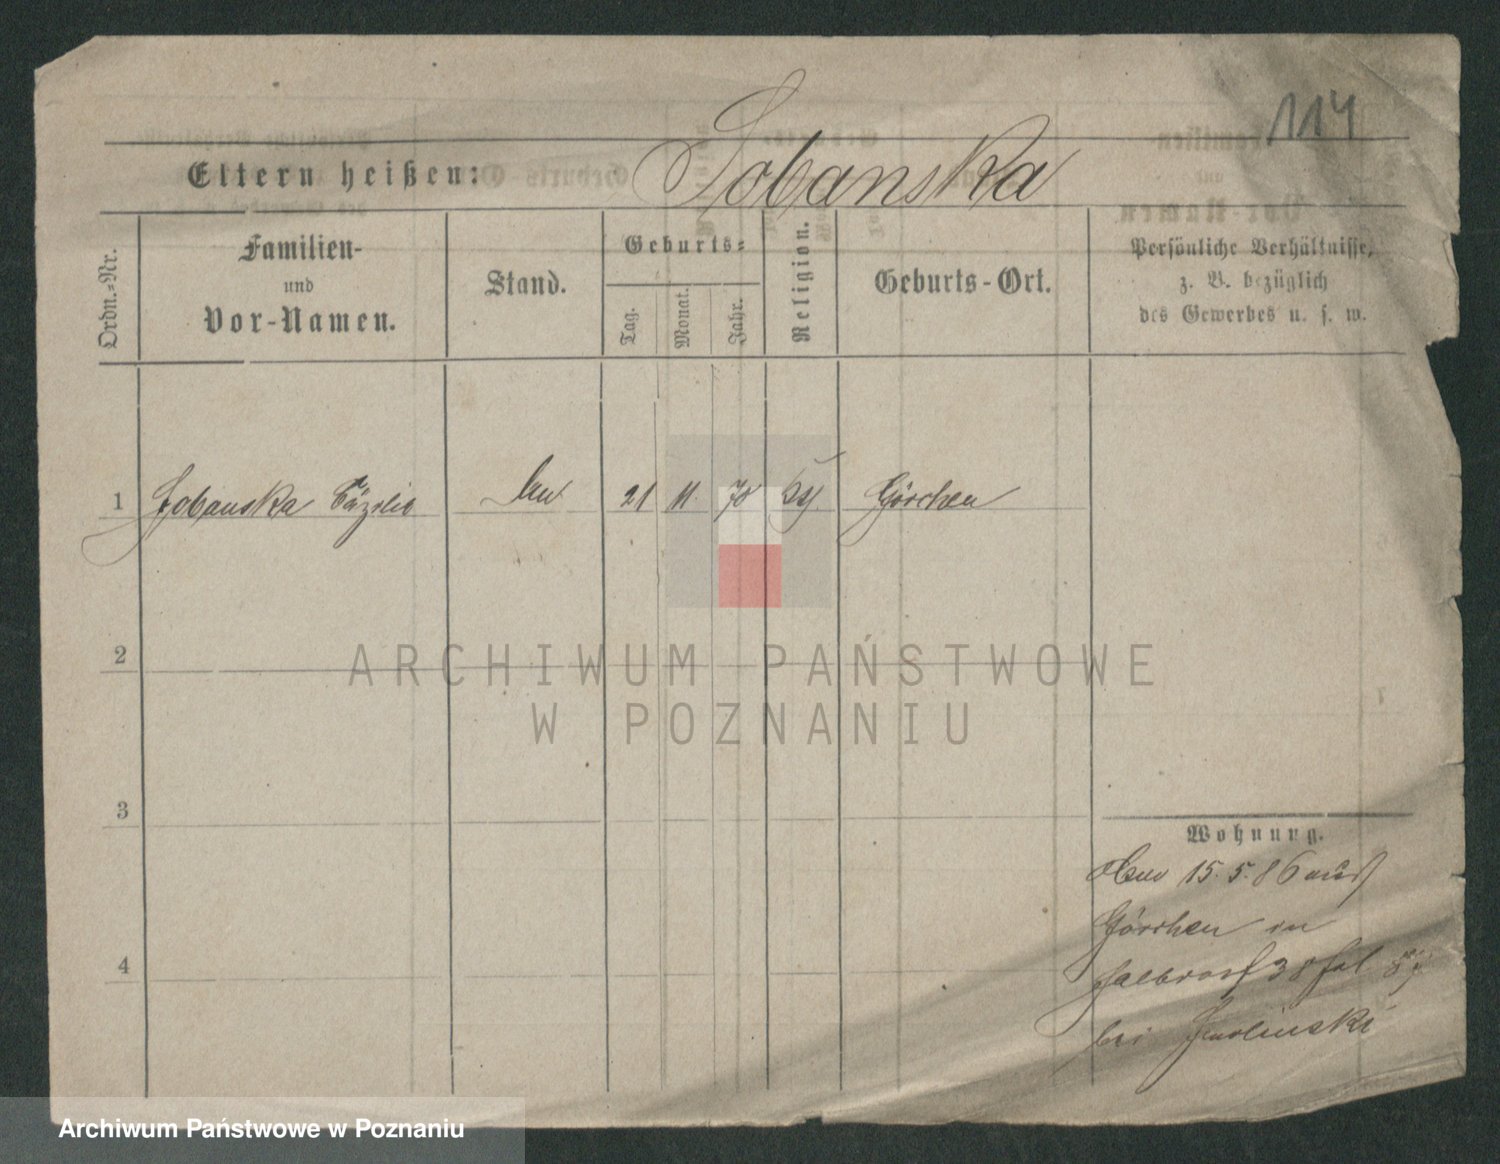 114
Eltern heißen: Sobanska
Ordn.-Nr.
Familien-
und
Vor-Namen.
Stand.
Geburts-
Tag.
Monat.
Jahr.
Religion.
Geburts-Ort.
Persönliche Verhältnisse,
z. B. bezüglich
des Gewerbes u. s. w.
1 Sobanska Cäzilie 21 11. 70 Görchen
2
3
4
ARCHIWUM PAŃSTWOWE
W POZNANIU
Wohnung.
15. 5. 86
Görchen in
Halbdorf 38
bei Smolinski
Archiwum Państwowe w Poznaniu